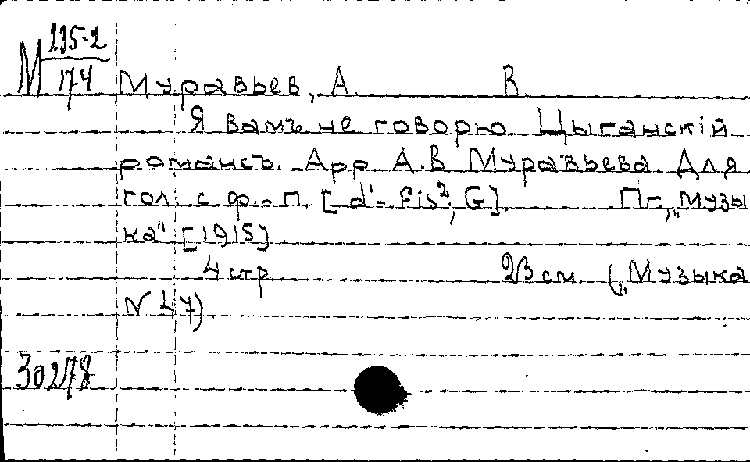 М 115-2
174
Муравьев, А. В.
Я вамъ не говорю. Цыганскій
романсъ. Арр. А.В. Муравьева. Для
гол. с ф.-п. [d¹-fis², G]. Пг., „Музы
ка" [1915]
4 стр. 23 см. („Музыка
N 47).
30278